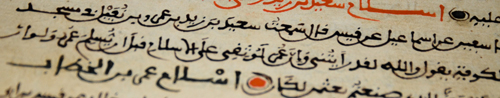 عليه اسلام سعيد بن زيد
نا سفين عن اسماعيل عن قيس قال سمعت سعيد بن زيد بن عمرو بن نفيل في مسجد
الكوفة يقول والله لقد رايتني وان عمر لموثقي على الاسلام قبل ان يسلم عمر ولو ان
صنعتم بعثمن لكان اسلام عمر بن الخطاب